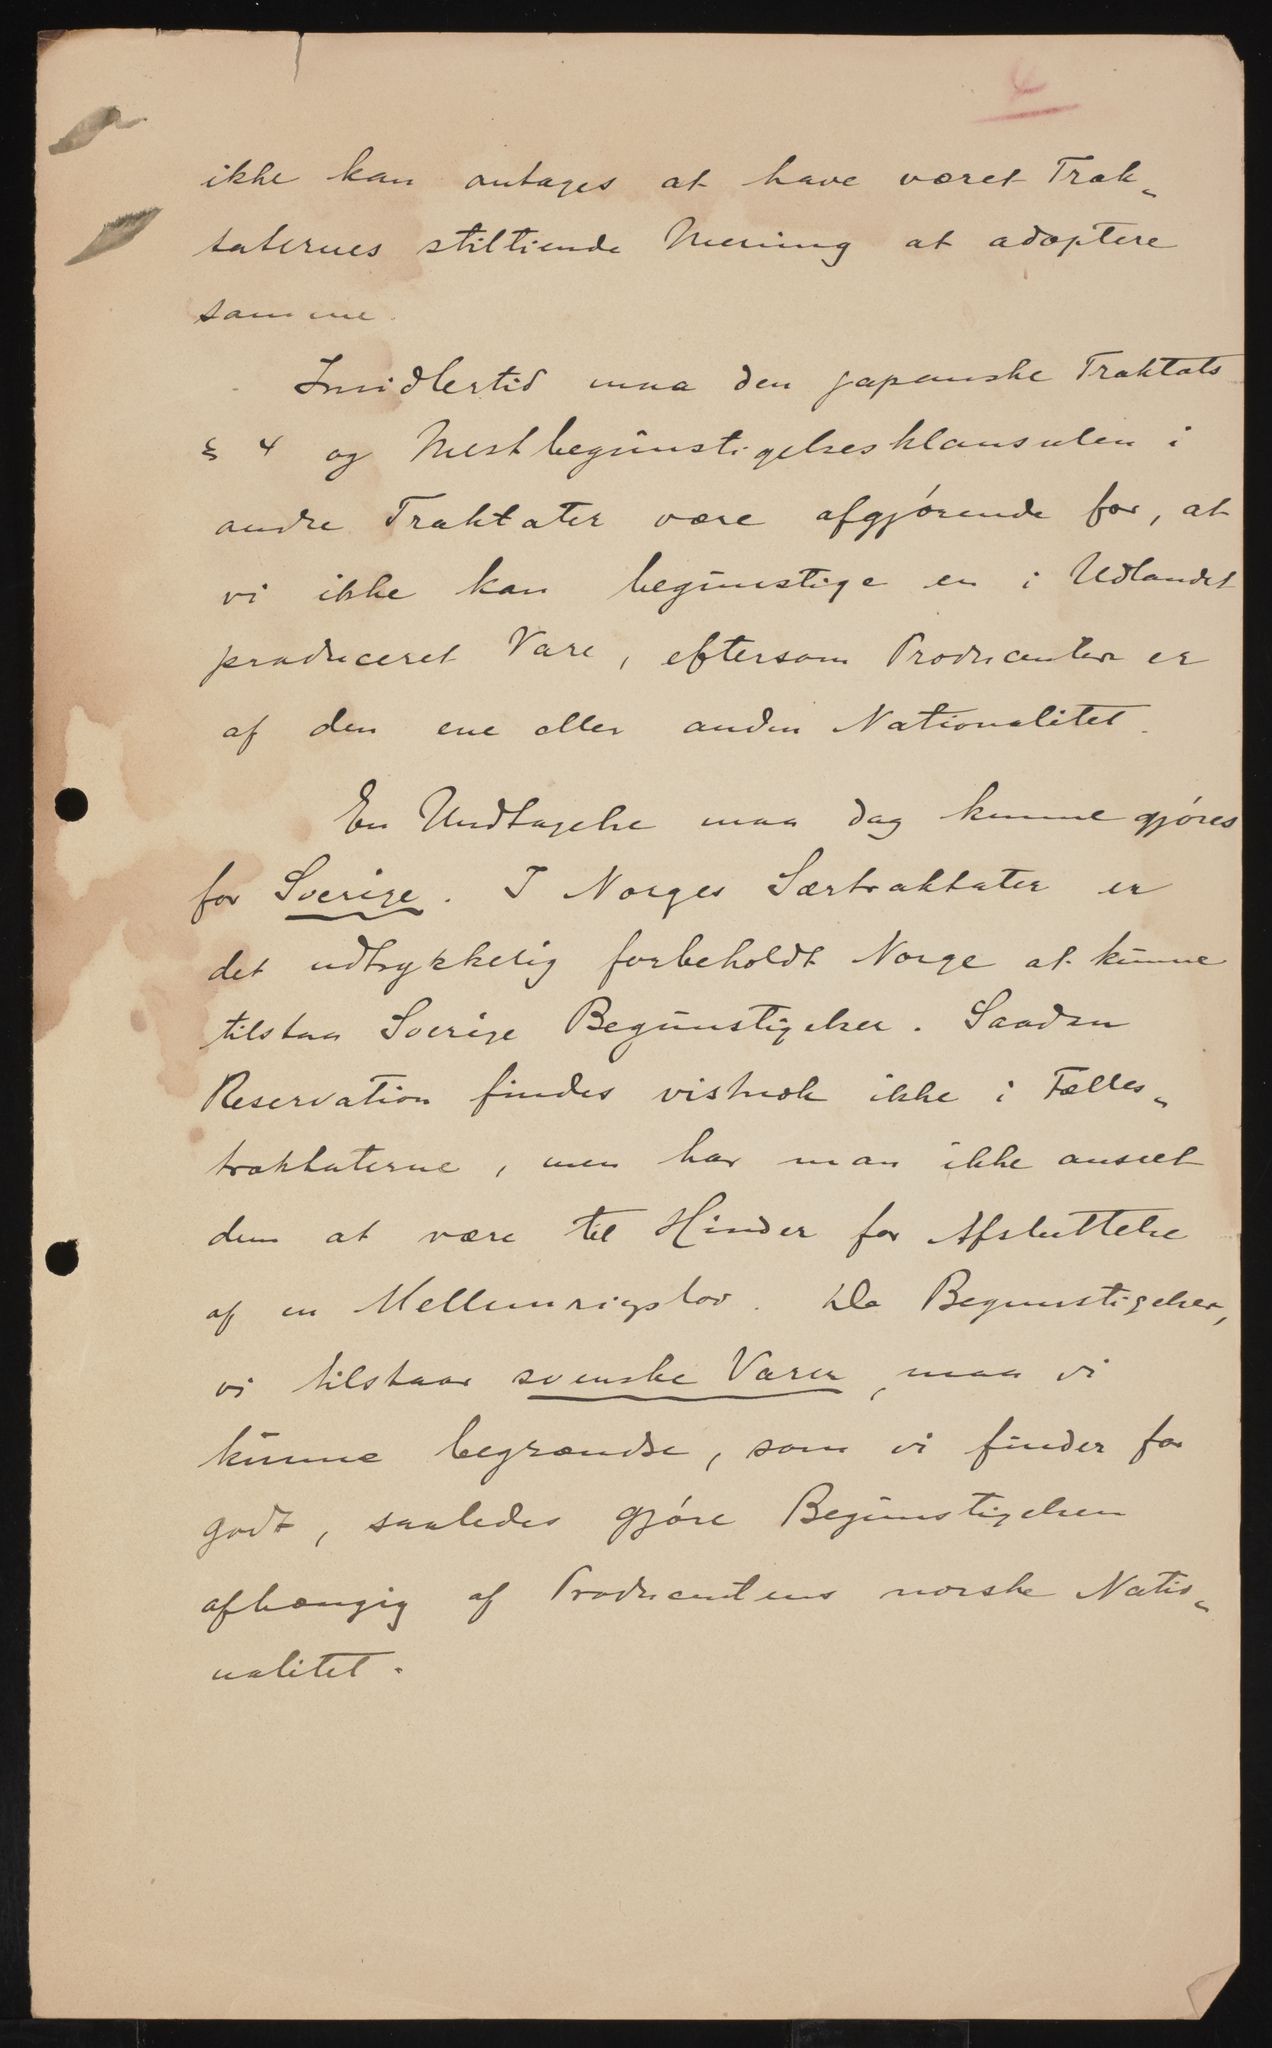 4
ikke kan antages at have været Trak-
taternes stiltiende Mening at adoptere
samme.
Imidlertid maa den japanske Traktats
§ 4 og Mestbegünstigelsesklausulen i
andre Traktater være afgjórende for, at
vi ikke kan begünstige en i Udlandet
produceret Vare, eftersom Producenten er
af den ene eller anden Nationalitet.
En Undtagelse maa dog kunne gjóres
for Sverige. I Norges Særtraktater er
det udtrykkelig forbeholdt Norge at künne
tilstaa Sverige Begünstigelser. Saadan
Reservation findes vistnok ikke i Fælles-
traktaterne, men har man ikke anseet
dem at være til Hinder for Afsluttelse
af en Mellemrigslov. De Begunstigelser,
vi tilstaar svenske Varer, maa vi
künne begrændse, som vi finder for
godt, saaledes gjóre Begünstigelsen
afhængig af Producentens norske Natio-
nalitet.